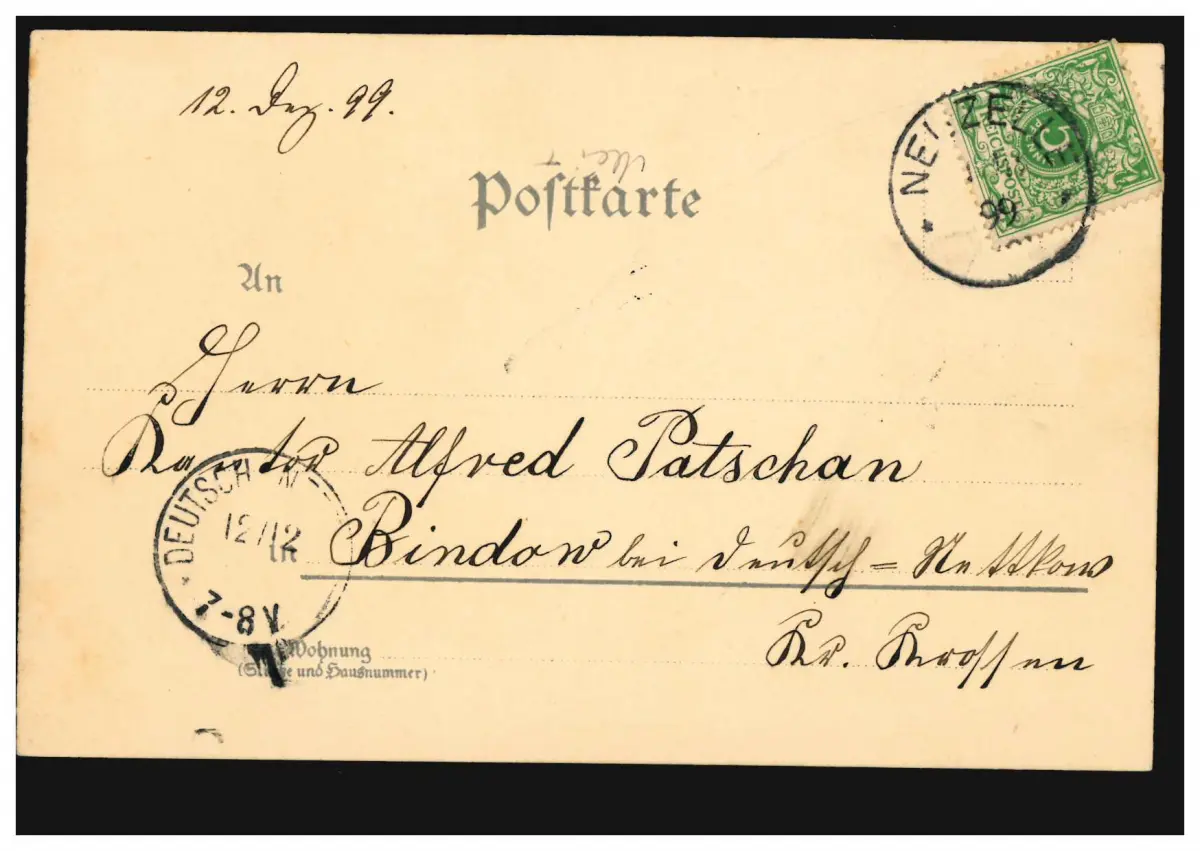 12. Dez. 99.
Postkarte
NEUZELLE
99
5
REICHSPOST
An
Herrn
Kantor Alfred Patschan
DEUTSCH N
12/12
7-8V
in Bindow bei Deutsch=Nettkow
Wohnung
(Straße und Hausnummer)
Kr. Krossen